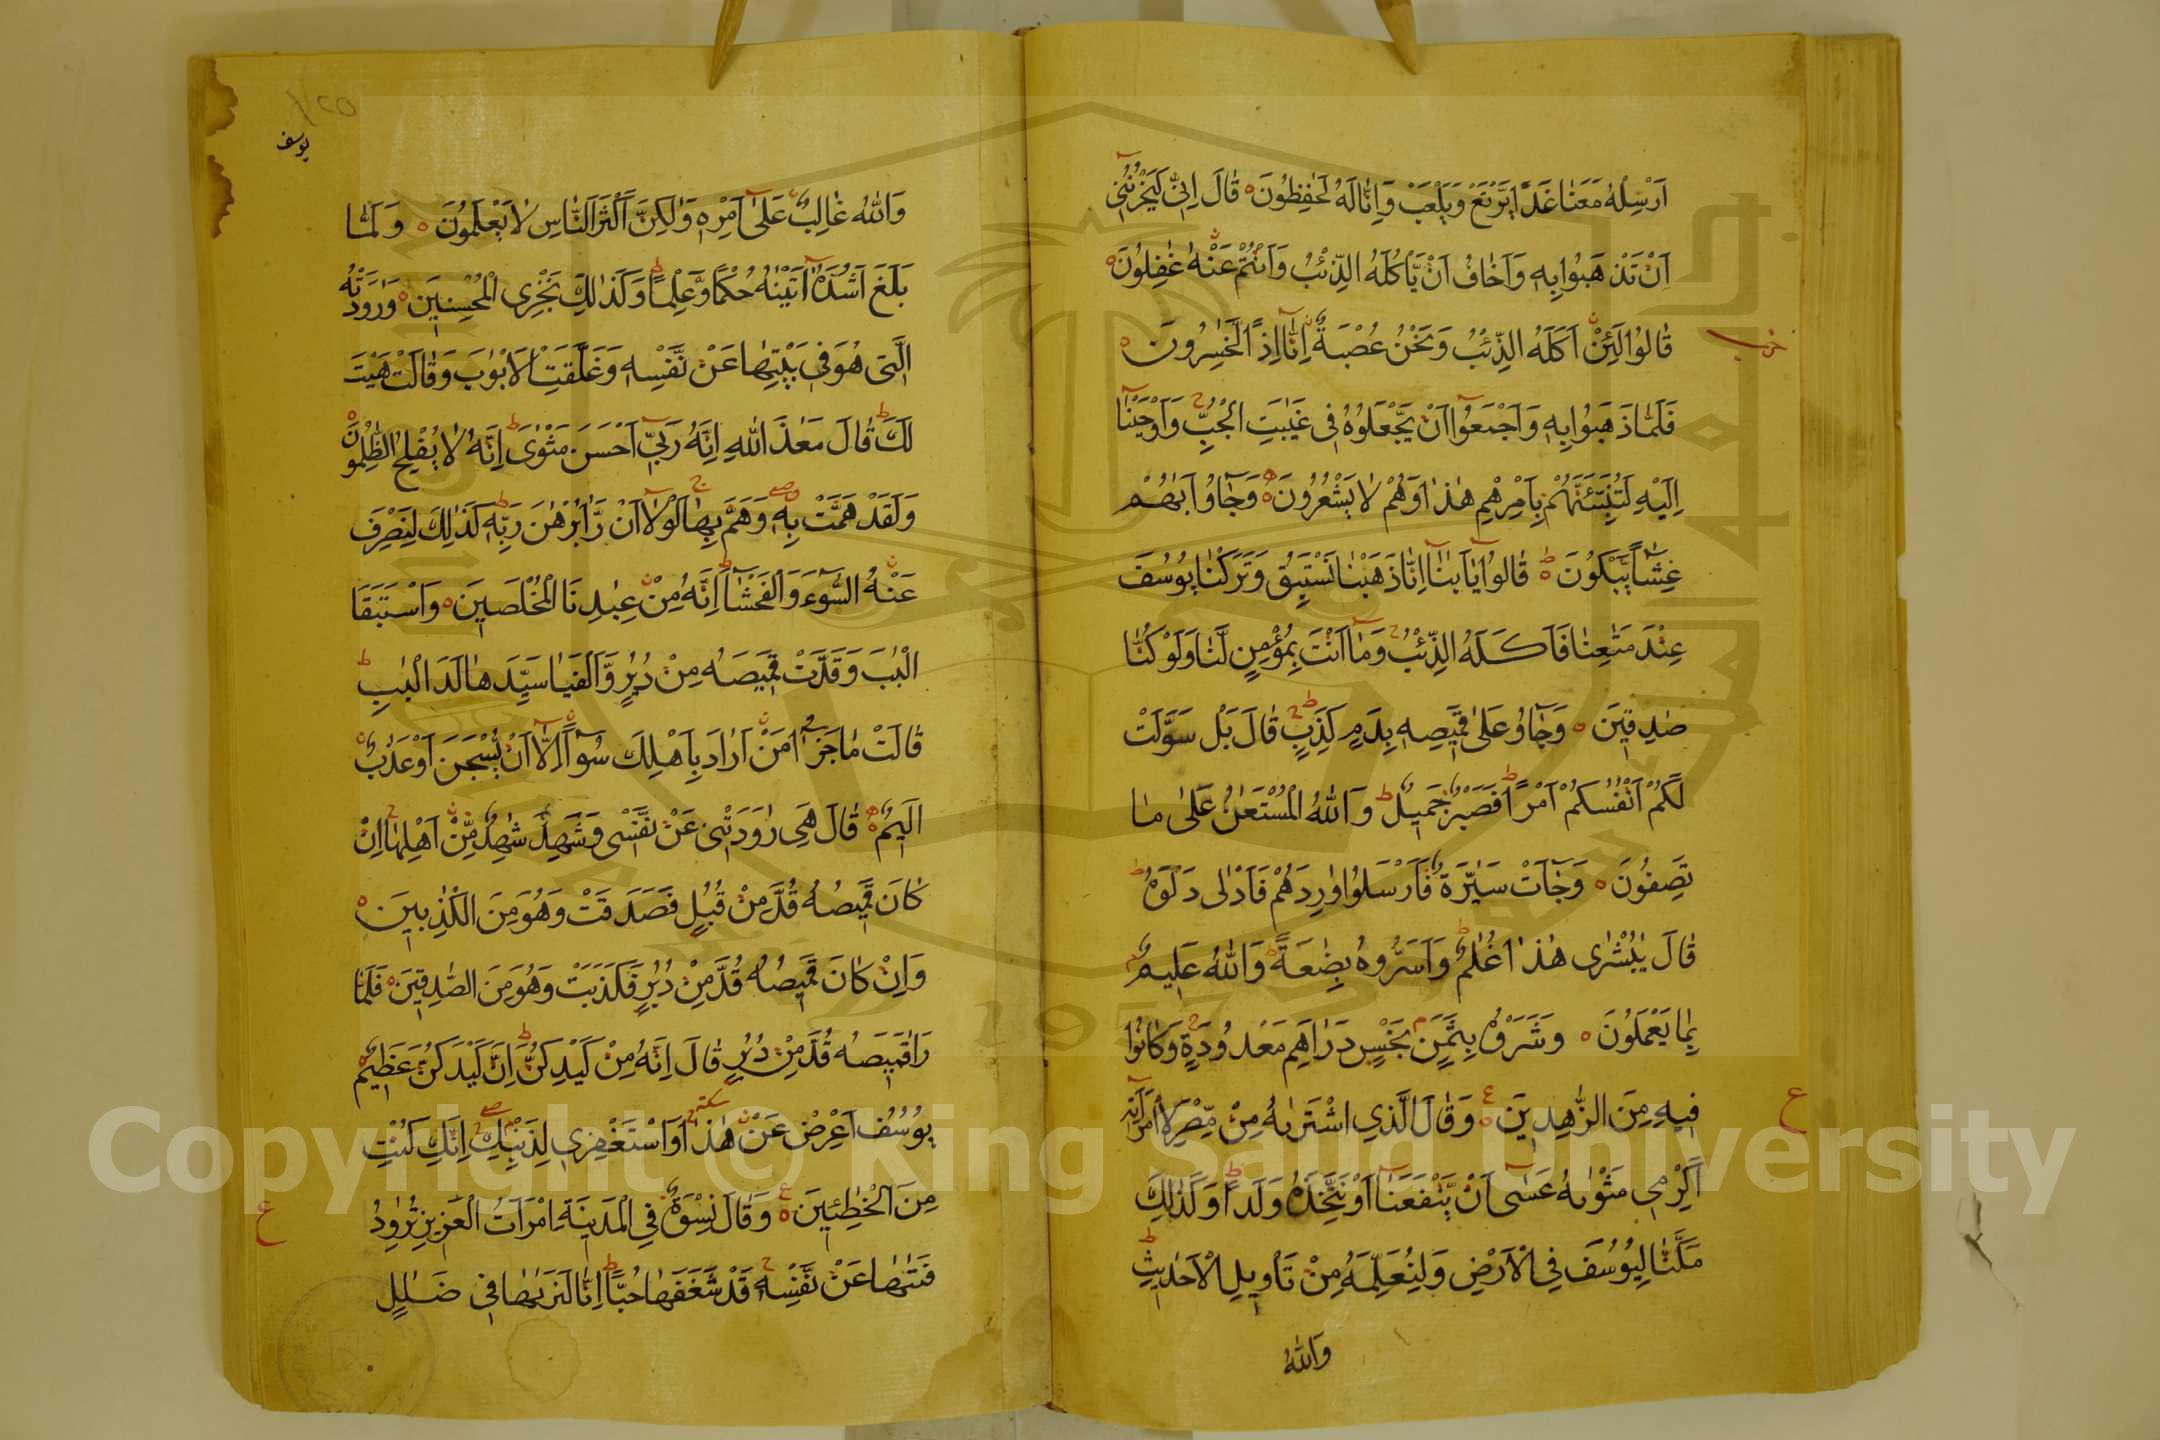 اَرْسِلْهُ مَعَنَا غَدًا يَرْتَعْ وَيَلْعَبْ وَاِنَّا لَهُ لَحٰفِظُونَ قَالَ اِنّ۪ي لَيَحْزُنُن۪ٓي
اَنْ تَذْهَبُوا بِهِ وَاَخَافُ اَنْ يَأْكُلَهُ الذِّئْبُ وَاَنْتُمْ عَنْهُ غٰفِلُونَ
قَالُوا لَئِنْ اَكَلَهُ الذِّئْبُ وَنَحْنُ عُصْبَةٌ اِنَّٓا اِذًا لَخٰسِرُونَ
حزب
فَلَمَّا ذَهَبُوا بِهِ وَاَجْمَعُٓوا اَنْ يَجْعَلُوهُ فِي غَيٰبَتِ الْجُبِّ وَاَوْحَيْنَٓا
اِلَيْهِ لَتُنَبِّئَنَّهُمْ بِاَمْرِهِمْ هٰذَا وَهُمْ لَا يَشْعُرُونَ وَجَٓاؤُ اَبَاهُمْ
عِشَٓاءً يَبْكُونَ قَالُوا يَٓا اَبَانَٓا اِنَّا ذَهَبْنَا نَسْتَبِقُ وَتَرَكْنَا يُوسُفَ
عِنْدَ مَتَاعِنَا فَاَكَلَهُ الذِّئْبُ وَمَٓا اَنْتَ بِمُؤْمِنٍ لَنَا وَلَوْ كُنَّا
صٰدِقِينَ وَجَٓاؤُ عَلٰى قَمِيصِهِ بِدَمٍ كَذِبٍ قَالَ بَلْ سَوَّلَتْ
لَكُمْ اَنْفُسُكُمْ اَمْرًا فَصَبْرٌ جَمِيلٌ وَاللّٰهُ الْمُسْتَعَانُ عَلٰى مَا
تَصِفُونَ وَجَٓاءَتْ سَيَّارَةٌ فَاَرْسَلُوا وَارِدَهُمْ فَاَدْلٰى دَلْوَهُ
قَالَ يٰبُشْرٰى هٰذَا غُلٰمٌ وَاَسَرُّوهُ بِضَاعَةً وَاللّٰهُ عَلِيمٌ
بِمَا يَعْمَلُونَ وَشَرَوْهُ بِثَمَنٍ بَخْسٍ دَرَاهِمَ مَعْدُودَةٍ وَكَانُوا
فِيهِ مِنَ الزَّاهِدِينَ وَقَالَ الَّذِي اشْتَرٰيهُ مِنْ مِصْرَ لِامْرَاَتِهِ
ع
اَكْرِمِي مَثْوٰيهُ عَسٰٓى اَنْ يَنْفَعَنَٓا اَوْ نَتَّخِذَهُ وَلَدًا وَكَذٰلِكَ
مَكَّنَّا لِيُوسُفَ فِي الْاَرْضِ وَلِنُعَلِّمَهُ مِنْ تَأْوِيلِ الْاَحَادِيثِ
وَاللّٰهُ
يوسف
وَاللّٰهُ غَالِبٌ عَلٰٓى اَمْرِهِ وَلٰكِنَّ اَكْثَرَ النَّاسِ لَا يَعْلَمُونَ وَلَمَّا
بَلَغَ اَشُدَّهُٓ اٰتَيْنٰهُ حُكْمًا وَعِلْمًا وَكَذٰلِكَ نَجْزِي الْمُحْسِنِينَ وَرَاوَدَتْهُ
الَّتِي هُوَ فِي بَيْتِهَا عَنْ نَفْسِهِ وَغَلَّقَتِ الْاَبْوٰبَ وَقَالَتْ هَيْتَ
لَكَ قَالَ مَعَاذَ اللّٰهِ اِنَّهُ رَبِّٓي اَحْسَنَ مَثْوٰيَ اِنَّهُ لَا يُفْلِحُ الظّٰلِمُونَ
وَلَقَدْ هَمَّتْ بِهِ وَهَمَّ بِهَا لَوْلَٓا اَنْ رَاٰ بُرْهٰنَ رَبِّهِ كَذٰلِكَ لِنَصْرِفَ
عَنْهُ السُّٓوءَ وَالْفَحْشَٓاءَ اِنَّهُ مِنْ عِبَادِنَا الْمُخْلَصِينَ وَاسْتَبَقَا
الْبَابَ وَقَدَّتْ قَمِيصَهُ مِنْ دُبُرٍ وَاَلْفَيَا سَيِّدَهَا لَدَا الْبَابِ
قَالَتْ مَا جَزَٓاءُ مَنْ اَرَادَ بِاَهْلِكَ سُٓوءًا اِلَّٓا اَنْ يُسْجَنَ اَوْ عَذَابٌ
اَلِيمٌ قَالَ هِيَ رَاوَدَتْنِي عَنْ نَفْسِي وَشَهِدَ شَاهِدٌ مِنْ اَهْلِهَا اِنْ
كَانَ قَمِيصُهُ قُدَّ مِنْ قُبُلٍ فَصَدَقَتْ وَهُوَ مِنَ الْكٰذِبِينَ
وَاِنْ كَانَ قَمِيصُهُ قُدَّ مِنْ دُبُرٍ فَكَذَبَتْ وَهُوَ مِنَ الصّٰدِقِينَ فَلَمَّا
رَاٰ قَمِيصَهُ قُدَّ مِنْ دُبُرٍ قَالَ اِنَّهُ مِنْ كَيْدِكُنَّ اِنَّ كَيْدَكُنَّ عَظِيمٌ
يُوسُفُ اَعْرِضْ عَنْ هٰذَا وَاسْتَغْفِرِي لِذَنْبِكِ اِنَّكِ كُنْتِ
مِنَ الْخٰطِئِينَ وَقَالَ نِسْوَةٌ فِي الْمَدِينَةِ امْرَاَتُ الْعَزِيزِ تُرٰوِدُ
ع
فَتٰيهَا عَنْ نَفْسِهِ قَدْ شَغَفَهَا حُبًّا اِنَّا لَنَرٰيهَا فِي ضَلٰلٍ
Copyright © King Saud University
1957